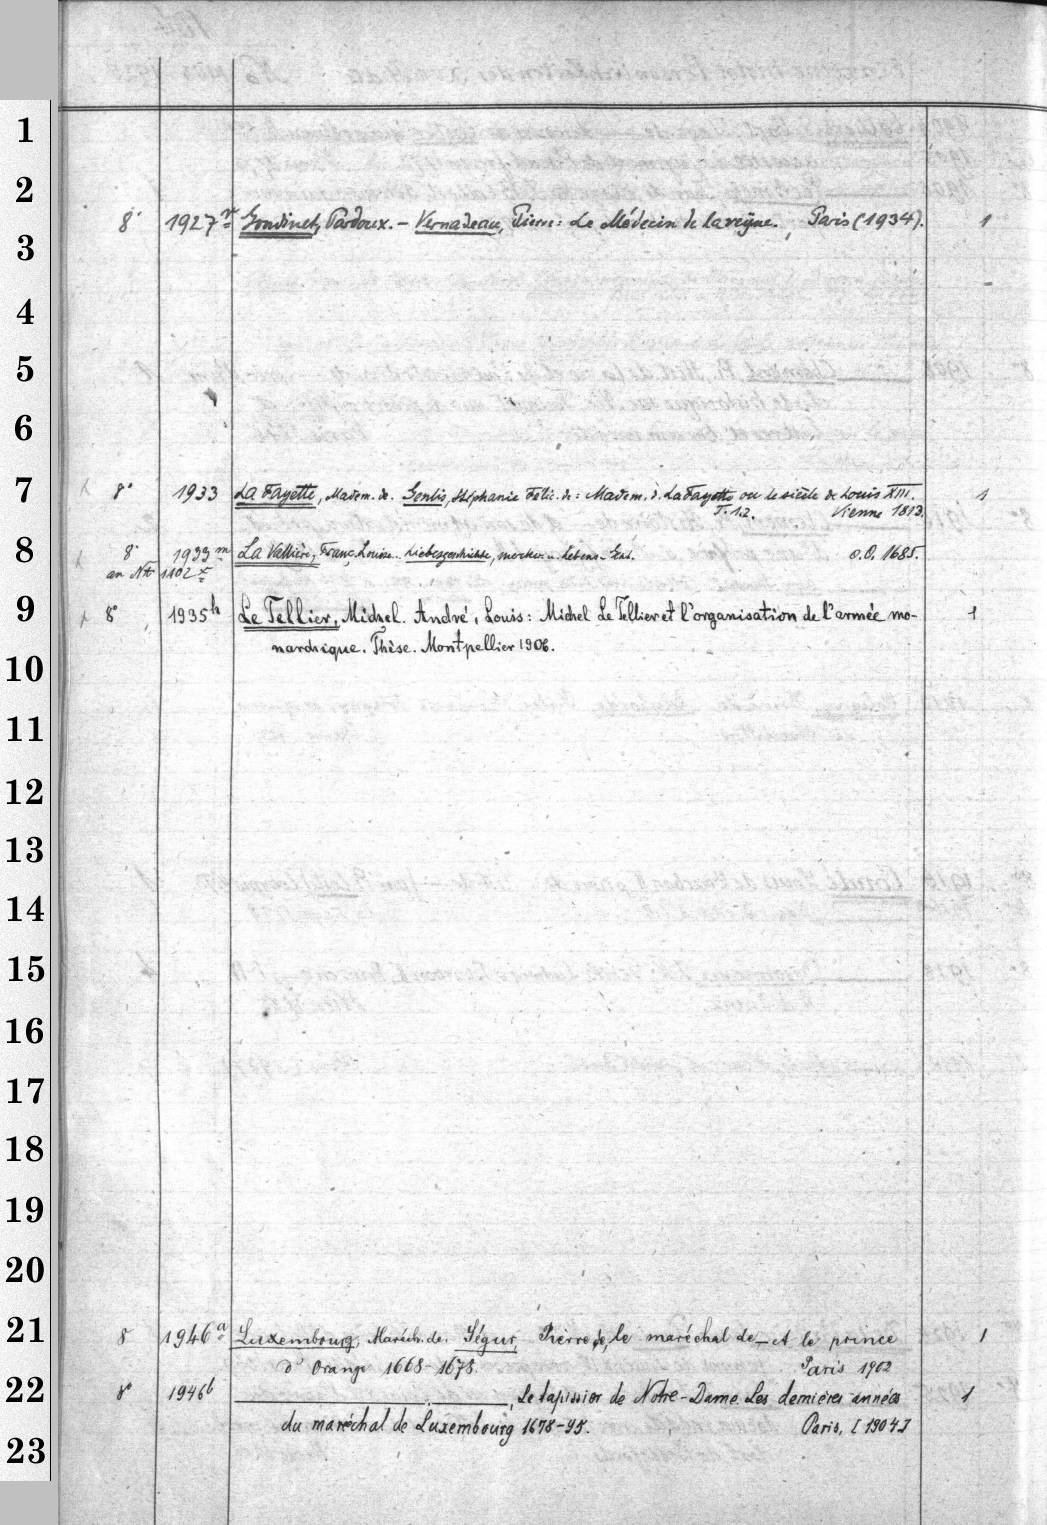 1
2
8° 1927 r Gondinet, Pardoux. – Vernadeau, Pierre: Le Médecin de la reyne. Paris (1934). 1
3
4
5
6
7 8° 1933 La Fayette, Madem. de. Genlis, Stéphanie Félic. de: Madem. d. La Fayette ou le siècle de Louis XIII. 1
T. 1.2. Vienne 1813.
8 8° 1933 m La Vallière, Franç. Louise. Liebesgeschichte, merkw. u. Lebens- o.O. 1685.
an 1102
9 8° 1935 h Le Tellier, Michel. André, Louis: Michel Le Tellier et l'organisation de l'armée mo- 1
narchique. Thèse. Montpellier 1906.
10
11
12
13
14
15
16
17
18
19
20
21 8 1946 a Luxembourg, Maréch. de. Ségur, Pierre de, le maréchal de – et le prince 1
d'Orange 1668-1678 Paris 1902
22 8° 1946 b , Le tapissier de Notre-Dame. Les dernières années 1
du maréchal de Luxembourg 1678-95. Paris, [1904]
23